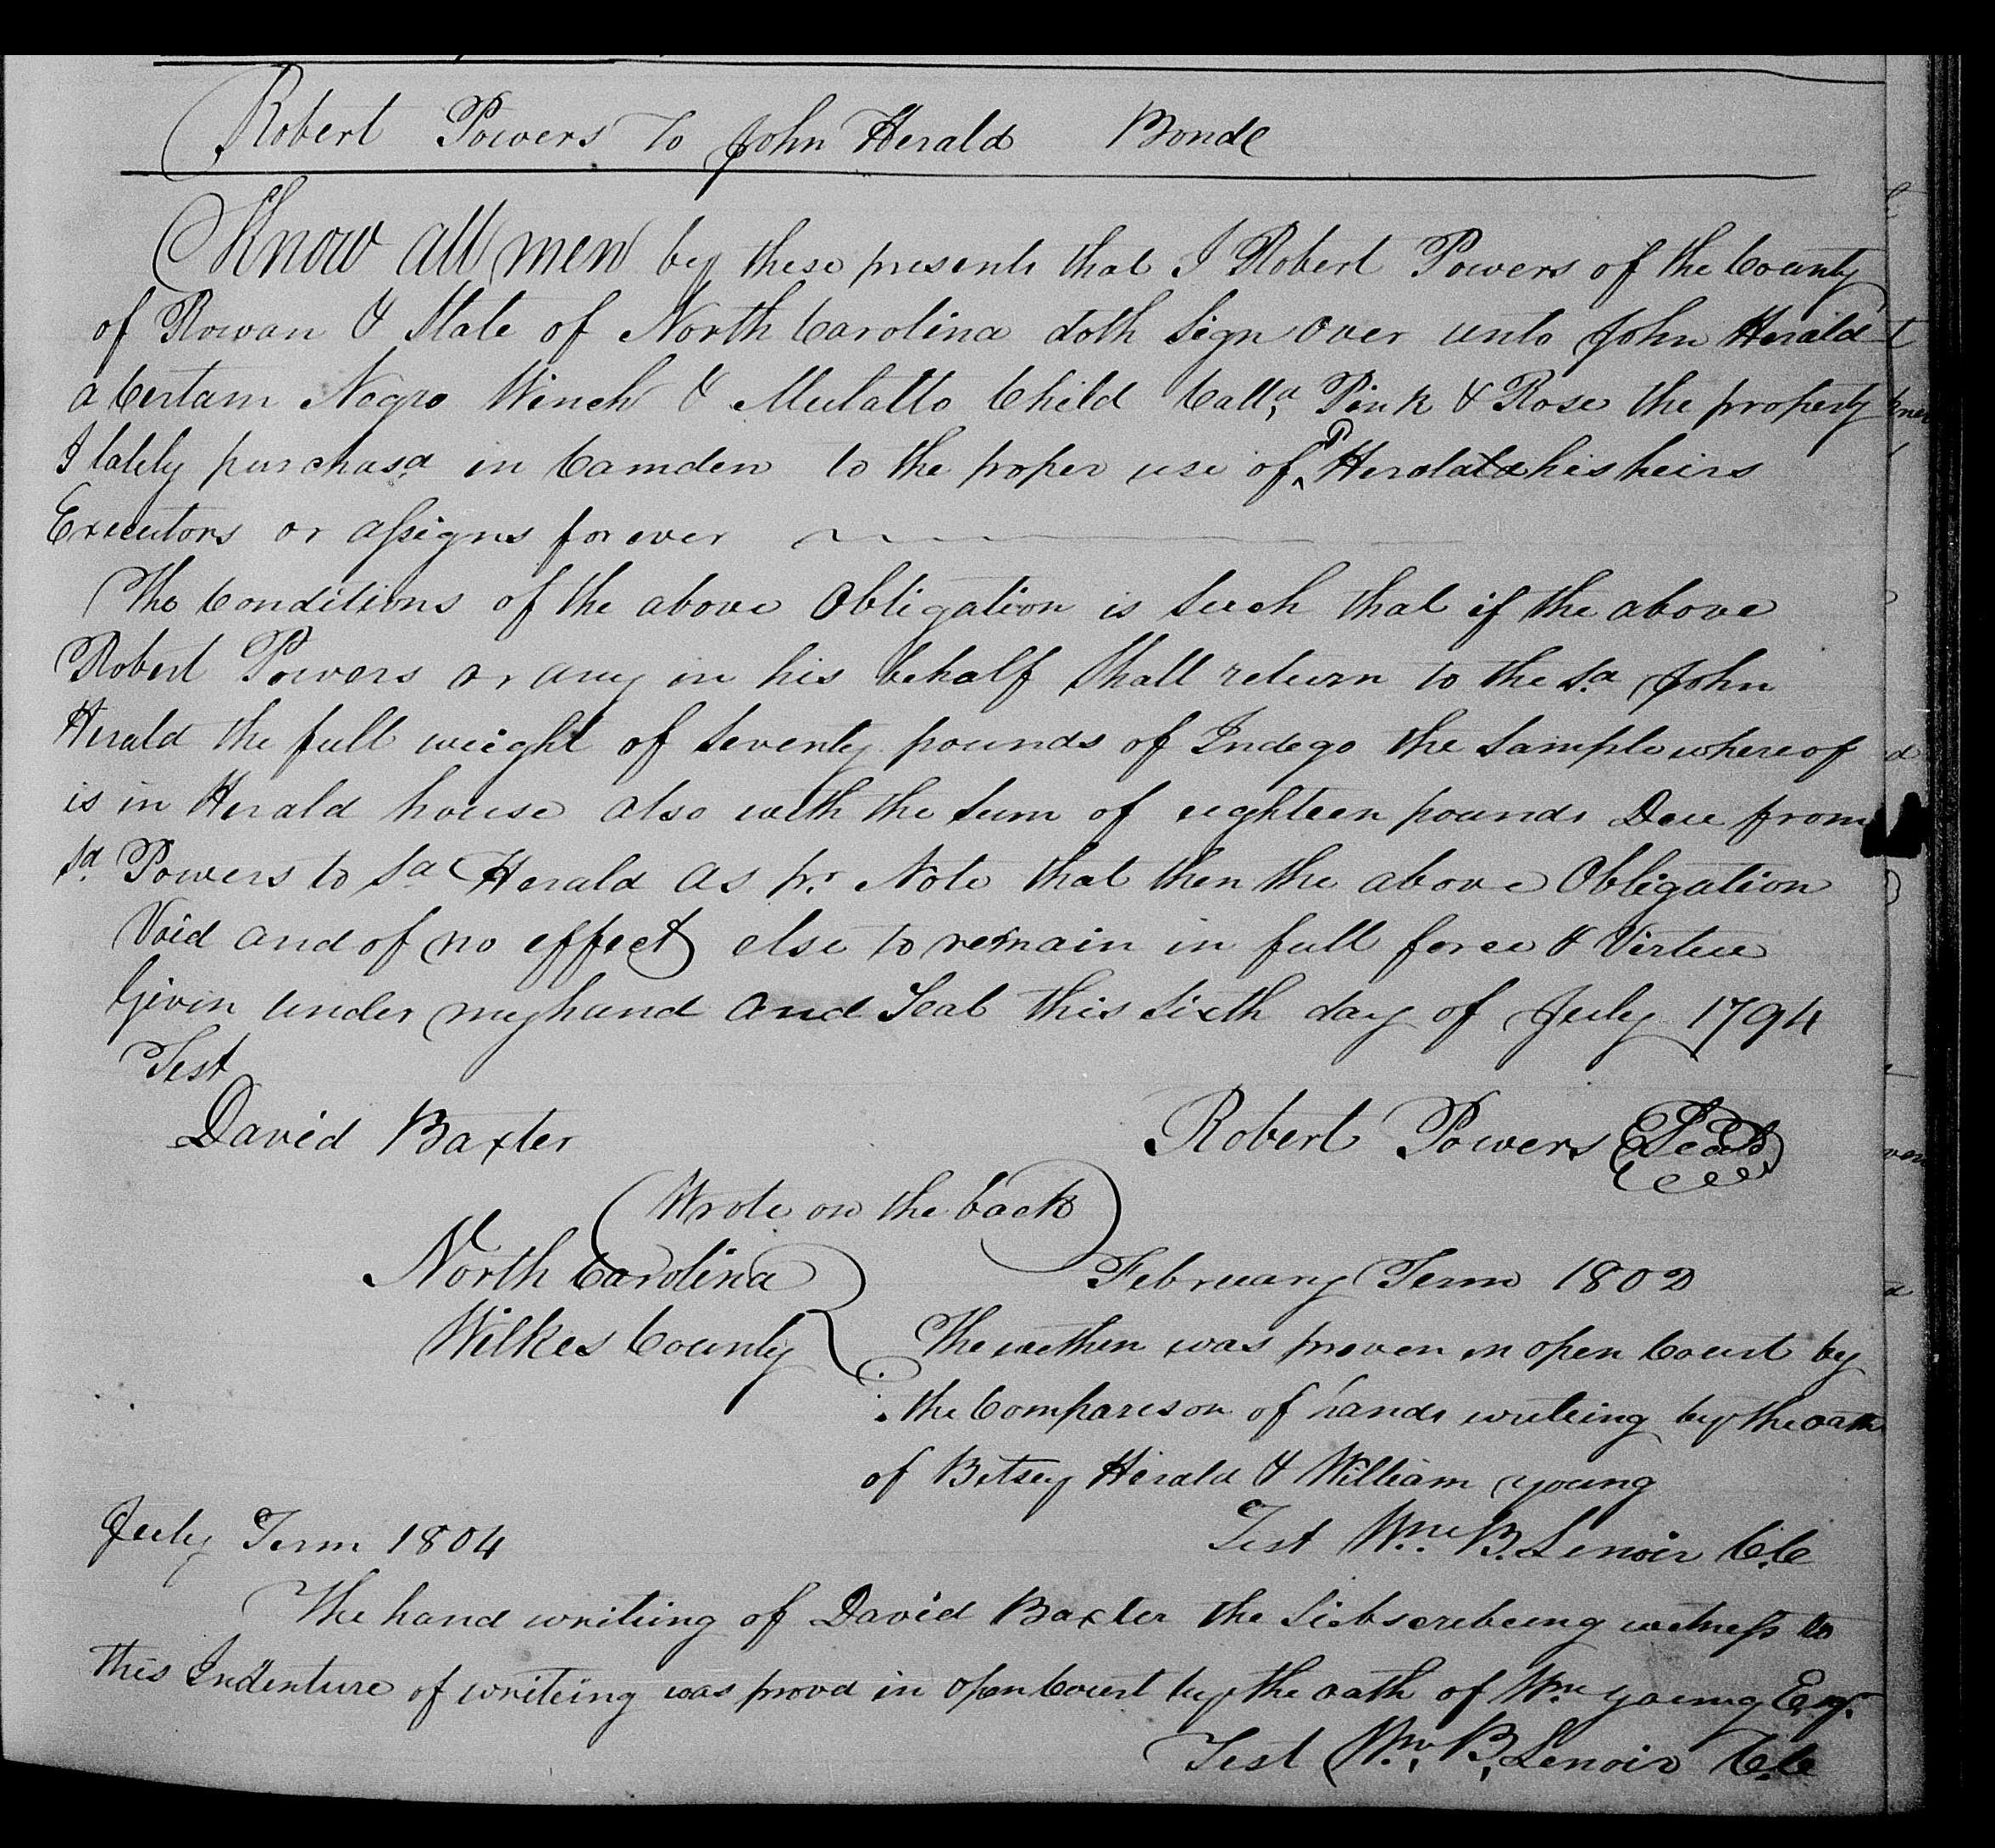 Robert Powers To John Herald Bonde
Know all men by these presents that I Robert Powers of the County
of Rowan & State of North Carolina doth Sign over unto John Herald
a Certain Negro Winch & Mulatto Child Calld Pink & Rose the property
I lately purchasd in Camden to the proper use of Herald his heirs
Executors or assigns forever
The Conditions of the above Obligation is Such that if the above
Robert Powers or any in his behalf Shall return to the sd John
Herald the full weight of Seventy pounds of Indego the Sample whereof
is in Herald house also with the Sum of eighteen pounds Due from
sd Powers to sd Herald as pr Note that then the above Obligation
Void and of no effect else to remain in full force & Virtue
Given under my hand and Seal this Sixth day of July 1794
Test
David Baxter Robert Powers Seal
Wrote on the back
North Carolina February Term 1802
Wilkes County The within was proven in open Court by
the Comparison of hands writeing by the oath
of Betsey Herald & William young
July Term 1804 Test Wm. B. Lenoir C.C
The hand writeing of David Baxter the Subscribeing witness to
this Indenture of writeing was provd in open Court by the oath of Wm young Esqr.
Test Wm. B. Lenoir C.C